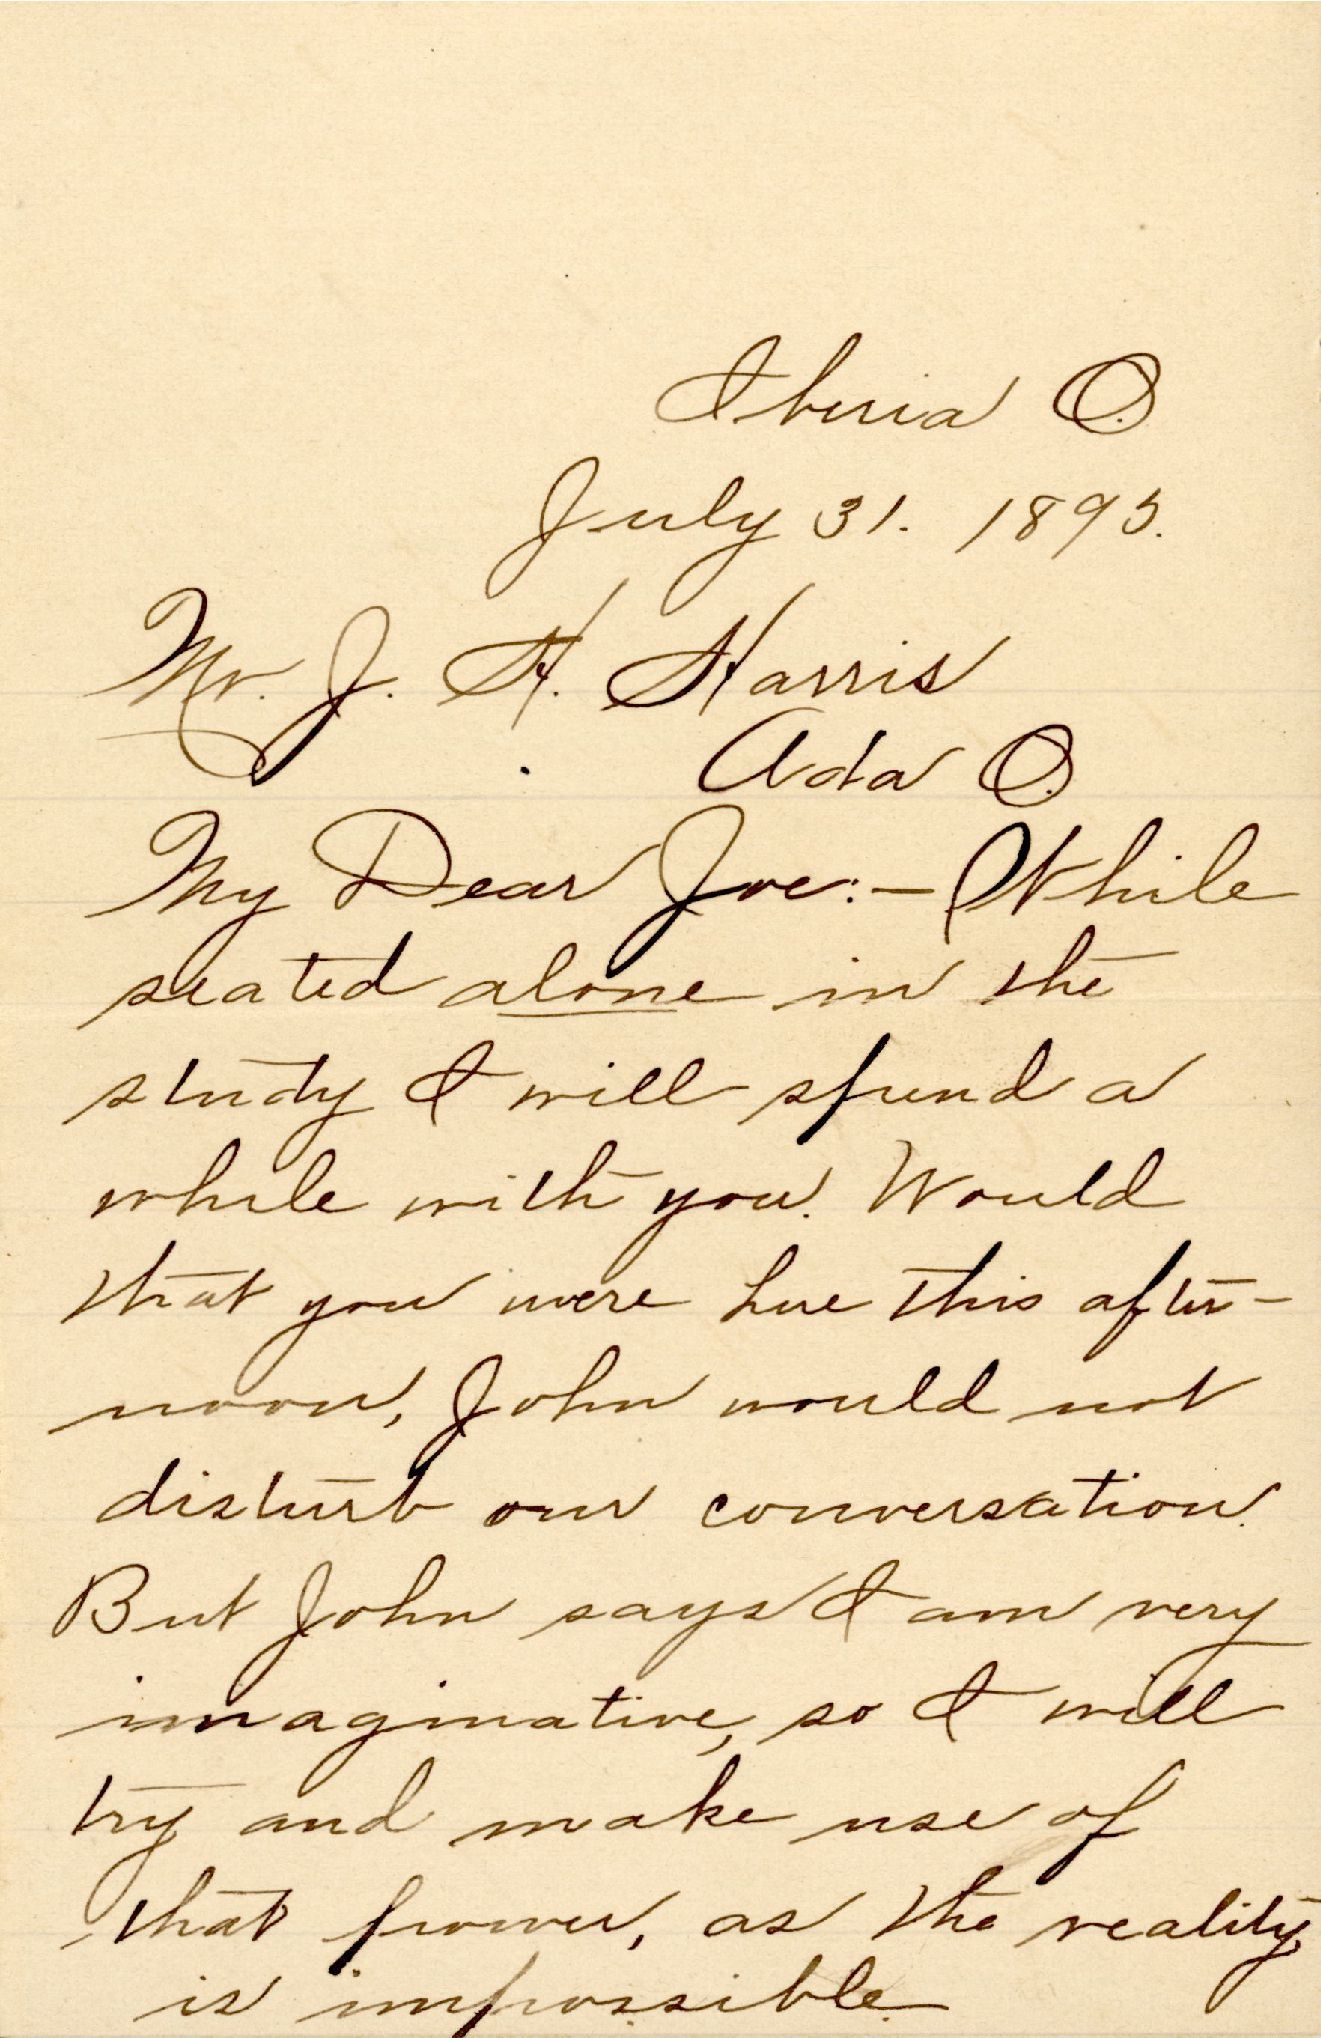 Iberia O.
July 31. 1895.
Mr. J. H. Harris
Ada O.
My Dear Joe:- While
seated alone in the
study I will spend a
while with you. Would
that you were here this after-
noon, John would not
disturb our conversation.
But John says I am very
imaginative, so I will
try and make use of
that power, as the reality
is impossible.